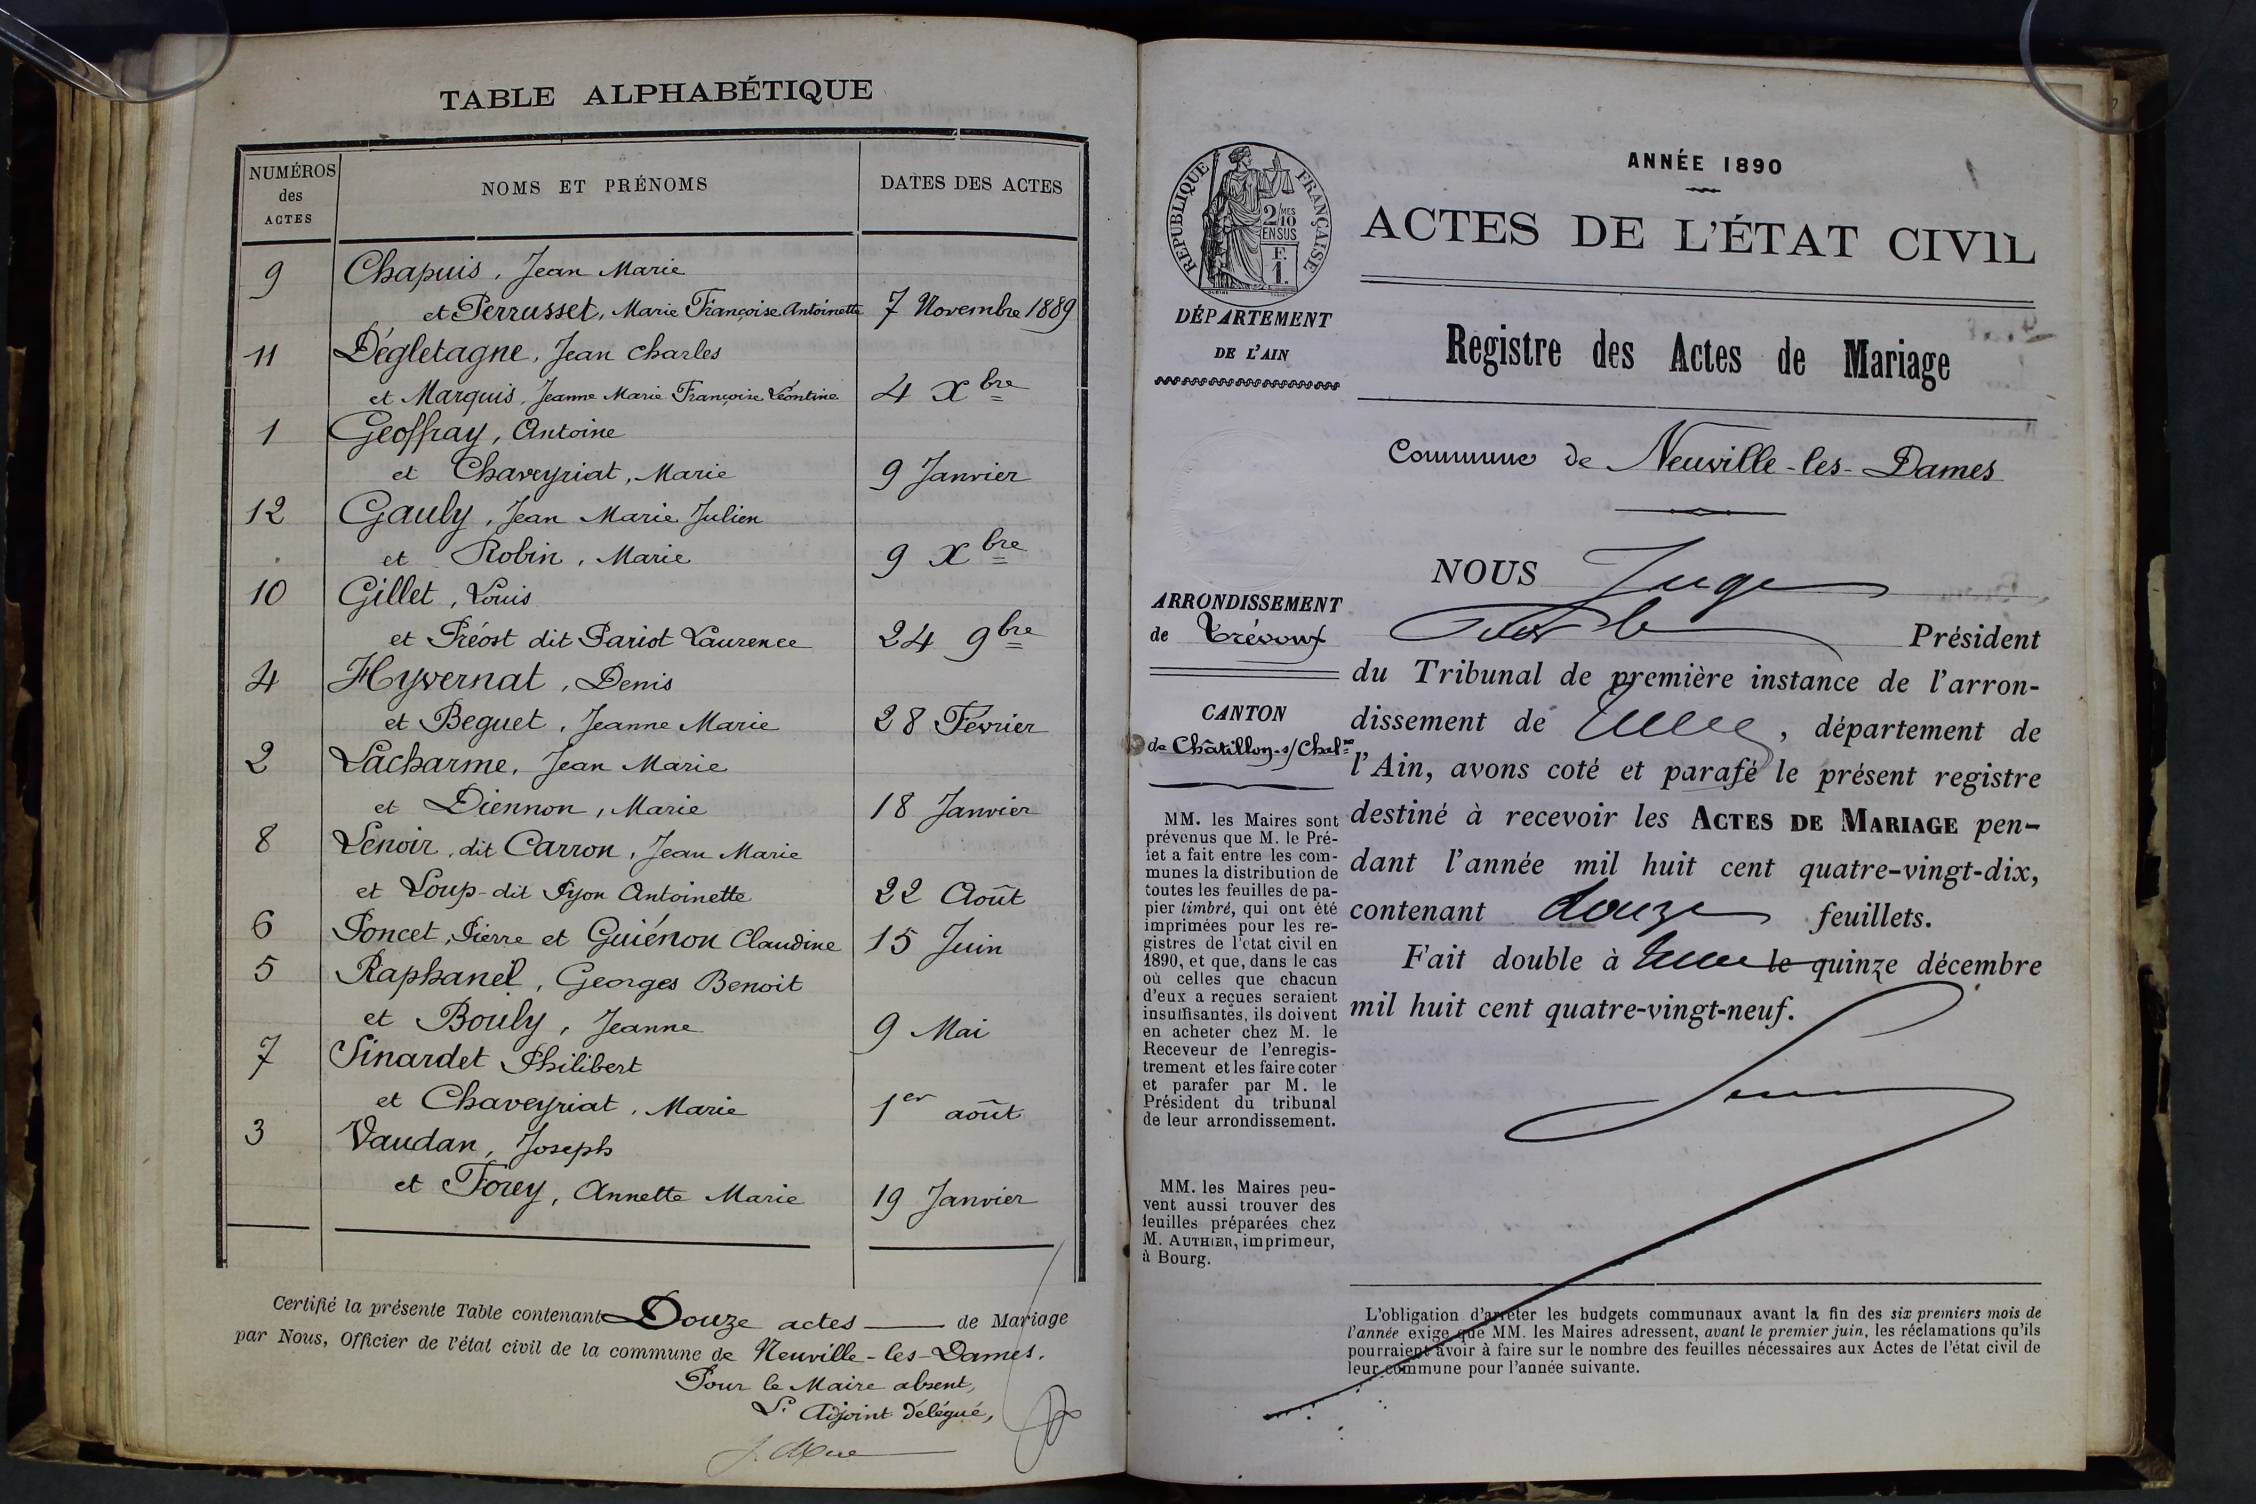 TABLE ALPHABÉTIQUE
NUMÉROS des ACTES
NOMS ET PRÉNOMS
DATES DES ACTES
9 Chapuis, Jean Marie
et Perrusset, Marie Françoise Antoinette 7 Novembre 1889
11 Dégletagne, Jean Charles
et Marquis, Jeanne Marie Françoise Léontine 4 Xbre
1 Geoffray, Antoine
et Chaveyriat, Marie 9 Janvier
12 Gauly, Jean Marie Julien
et Robin, Marie 9 Xbre
10 Gillet, Louis
et Préost dit Pariot Laurence 24 9bre
4 Hyvernat, Denis
et Beguet, Jeanne Marie 28 Février
2 Lacharme, Jean Marie
et Diennon, Marie 18 Janvier
8 Lenoir, dit Carron, Jean Marie
et Loup-dit Pyon Antoinette 22 Août
6 Poncet, Pierre et Guiénon Claudine 15 Juin
5 Raphanel, Georges Benoit
et Bouly, Jeanne 9 Mai
7 Sinardet Philibert
et Chaveyriat, Marie 1er août
3 Vaudan, Joseph
et Forey, Annette Marie 19 Janvier
Certifié la présente Table contenant Douze actes de Mariage
par Nous, Officier de l'état civil de la commune de Neuville-les-Dames.
Pour le Maire absent,
L'Adjoint délégué,
1
ANNÉE 1890
RÉPUBLIQUE FRANÇAISE
2/10MES
EN SUS
F.
1.
ACTES DE L'ÉTAT CIVIL
DÉPARTEMENT
DE L'AIN
Registre des Actes de Mariage
Commune de Neuville-les-Dames
ARRONDISSEMENT
de Trévoux
CANTON
de Châtillon-s/Chalne
MM. les Maires sont
prévenus que M. le Pré-
fet a fait entre les com-
munes la distribution de
toutes les feuilles de pa-
pier timbré, qui ont été
imprimées pour les re-
gistres de l'état civil en
1890, et que, dans le cas
où celles que chacun
d'eux a reçues seraient
insuffisantes, ils doivent
en acheter chez M. le
Receveur de l'enregis-
trement et les faire coter
et parafer par M. le
Président du tribunal
de leur arrondissement.
MM. les Maires peu-
vent aussi trouver des
feuilles préparées chez
M. AUTHIER, imprimeur,
à Bourg.
NOUS Juge
Président
du Tribunal de première instance de l'arron-
dissement de , département de
l'Ain, avons coté et parafé le présent registre
destiné à recevoir les ACTES DE MARIAGE pen-
dant l'année mil huit cent quatre-vingt-dix,
contenant douze feuillets.
Fait double à le quinze décembre
mil huit cent quatre-vingt-neuf.
L'obligation d'arrêter les budgets communaux avant la fin des six premiers mois de
l'année exige que MM. les Maires adressent, avant le premier juin, les réclamations qu'ils
pourraient avoir à faire sur le nombre des feuilles nécessaires aux Actes de l'état civil de
leur commune pour l'année suivante.